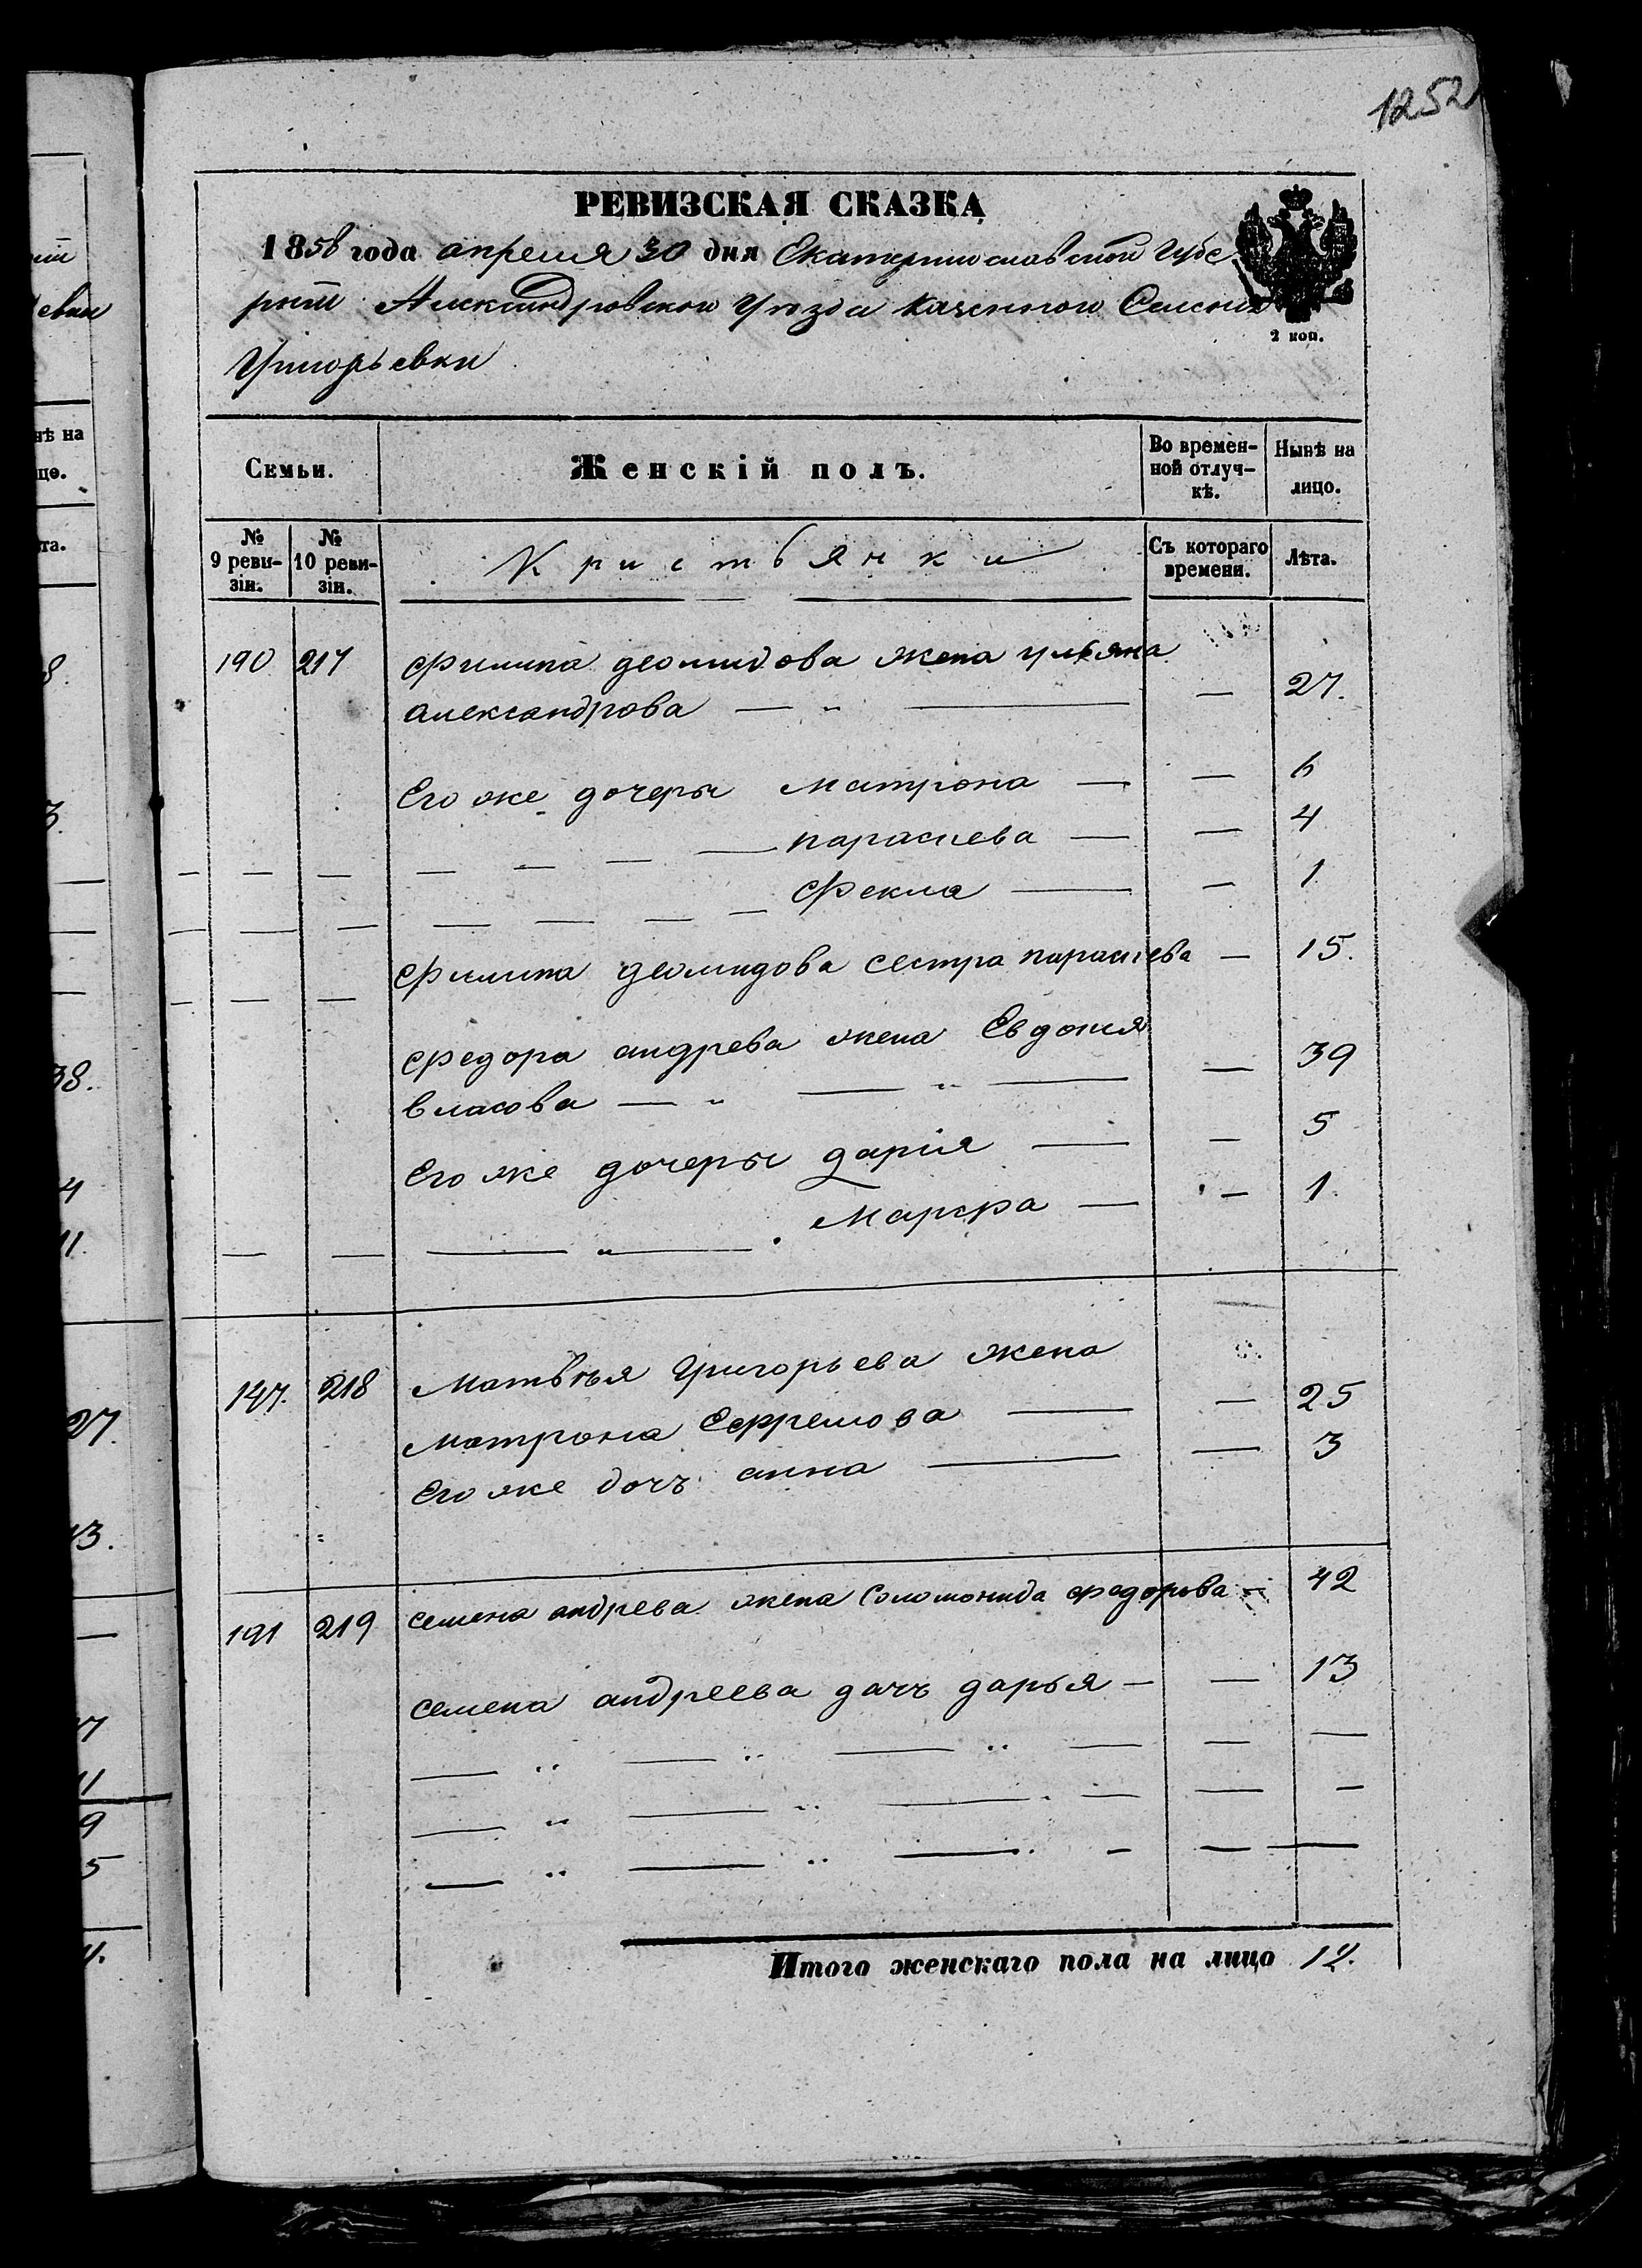 1252
РЕВИЗСКАЯ СКАЗКА
1858 года апреля 30 дня Екатеринославской Губе
рнии Александровскои Уѣзда Казенного Селения
Григорьевки
2 коп.
Семьи. Женскій полъ. Во времен-ной отлуч-кѣ. Нынѣ на лицо.
№ 9 реви-зіи. № 10 реви-зіи. Кристьянки Съ котораго времени. Лѣта.
190 217 Филипа деомидова жена ульяна
александрова — „ — — 27.
Его же дочеры Матрона — — 6
парасцева — — 4
Фекла — — 1
Филипа деомидова сестра парасцева — 15.
Федора андрева жена Евдокия
власова — „ — „ — — 39
Его же дочеры дарія — — 5
— „ — Марфра — — 1.
147. 218 Матвѣя Григорьева жена
Матрона Ефремова — — 25
Его же дочъ анна — — 3
191 219 семена андрева жена Соломонида федорова — 42
семена андреева дачъ дарья — — 13
Итого женскаго пола на лицо 12.
нѣ на
цо.
та.
евки
8.
3.
38.
4
11.
27.
13.
7
11
9
5
4.